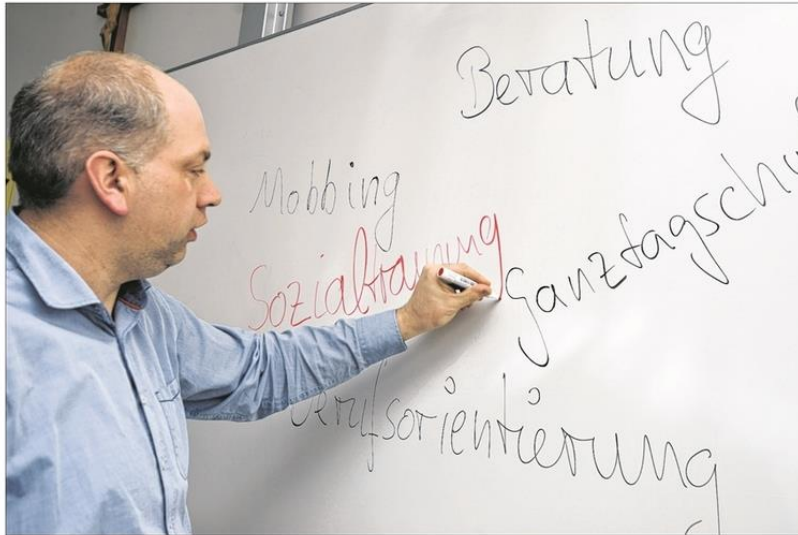 Beratung
Mobbing
Sozialtraining
Ganztagschu
Berufsorientierung